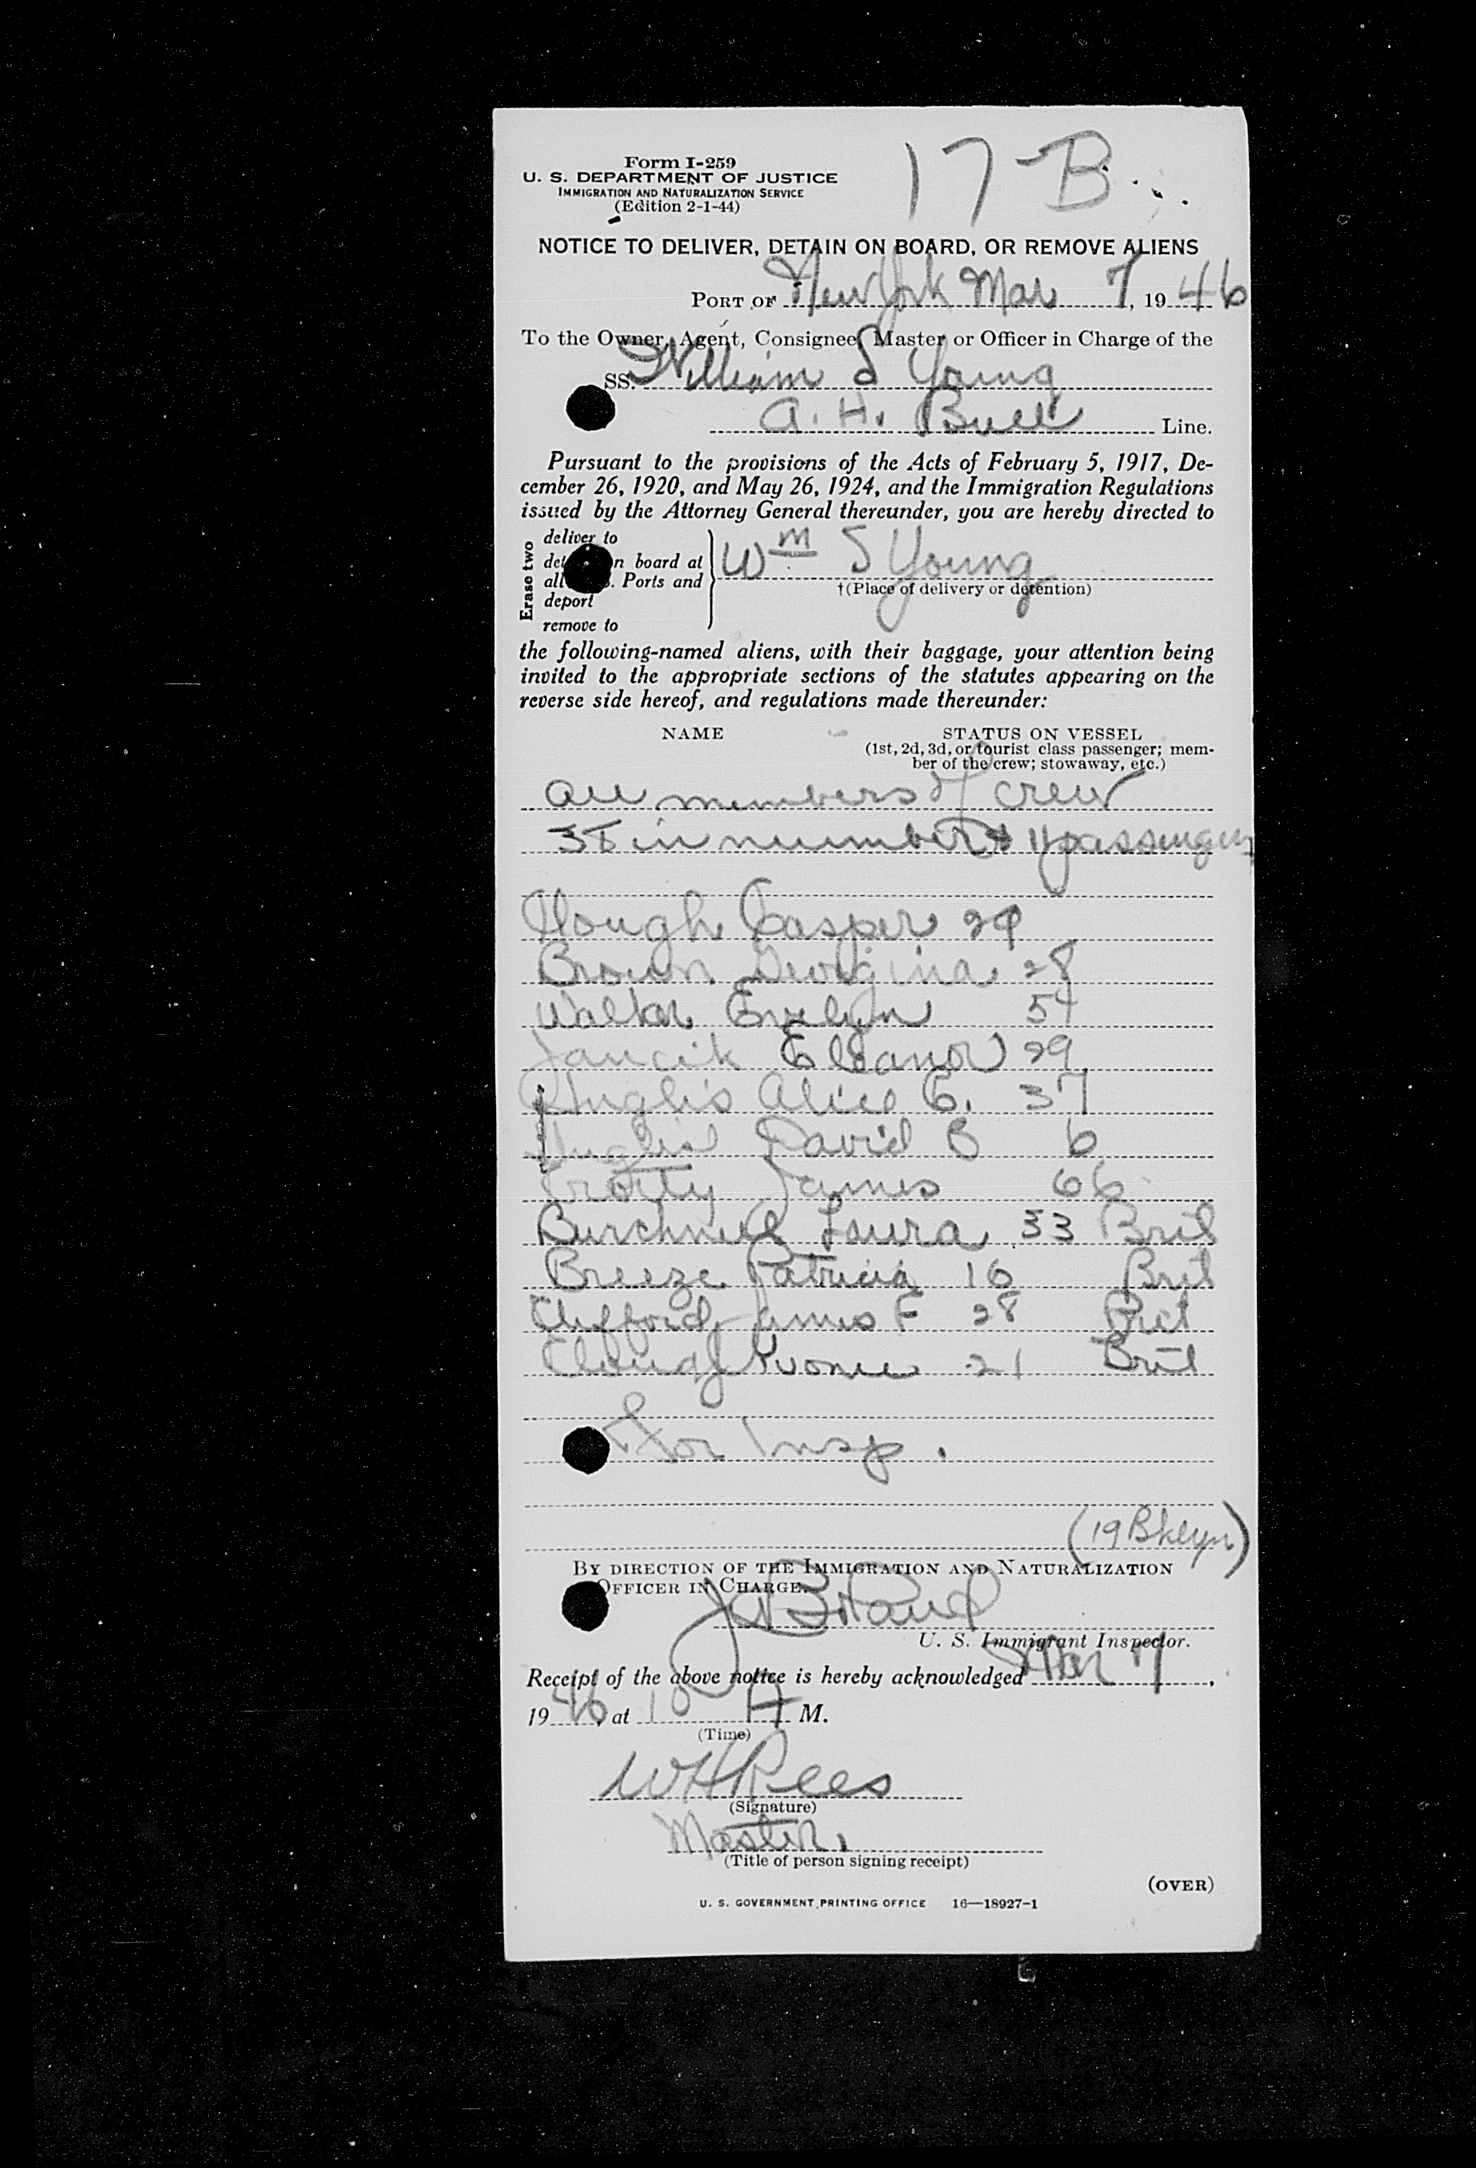 Form I-259
U. S. DEPARTMENT OF JUSTICE
IMMIGRATION AND NATURALIZATION SERVICE
(Edition 2-1-44)
17 B
NOTICE TO DELIVER, DETAIN ON BOARD, OR REMOVE ALIENS
PORT OF New York Mar 7, 1946
To the Owner, Agent, Consignee, Master or Officer in Charge of the
SS. William S Young
A. H. Bull Line.
Pursuant to the provisions of the Acts of February 5, 1917, De-
cember 26, 1920, and May 26, 1924, and the Immigration Regulations
issued by the Attorney General thereunder, you are hereby directed to
Erase two
deliver to
n board at
all S. Ports and
deport
remove to
Wm S Young
†(Place of delivery or detention)
the following-named aliens, with their baggage, your attention being
invited to the appropriate sections of the statutes appearing on the
reverse side hereof, and regulations made thereunder:
NAME STATUS ON VESSEL
(1st, 2d, 3d, or tourist class passenger; mem-
ber of the crew; stowaway, etc.)
All members of crew
38 in number & 11 passengers
Casper 29
Brown Georgina 28
Walker Evelyn 54
Jancik Eleanor 29
Alice E. 37
David B 6
James 66
Burchnell Laura 33 Brit
Breeze Patricia 16 Brit
Clifford James F 28 Brit
Yvonne 21 Brit
For Insp.
(19 Bklyn)
BY DIRECTION OF THE IMMIGRATION AND NATURALIZATION
OFFICER IN CHARGE.
U. S. Immigrant Inspector.
Receipt of the above notice is hereby acknowledged Mar 7,
1946, at 10 A M.
(Time)
W H Rees
(Signature)
Master
(Title of person signing receipt)
(OVER)
U. S. GOVERNMENT PRINTING OFFICE 16—18927-1